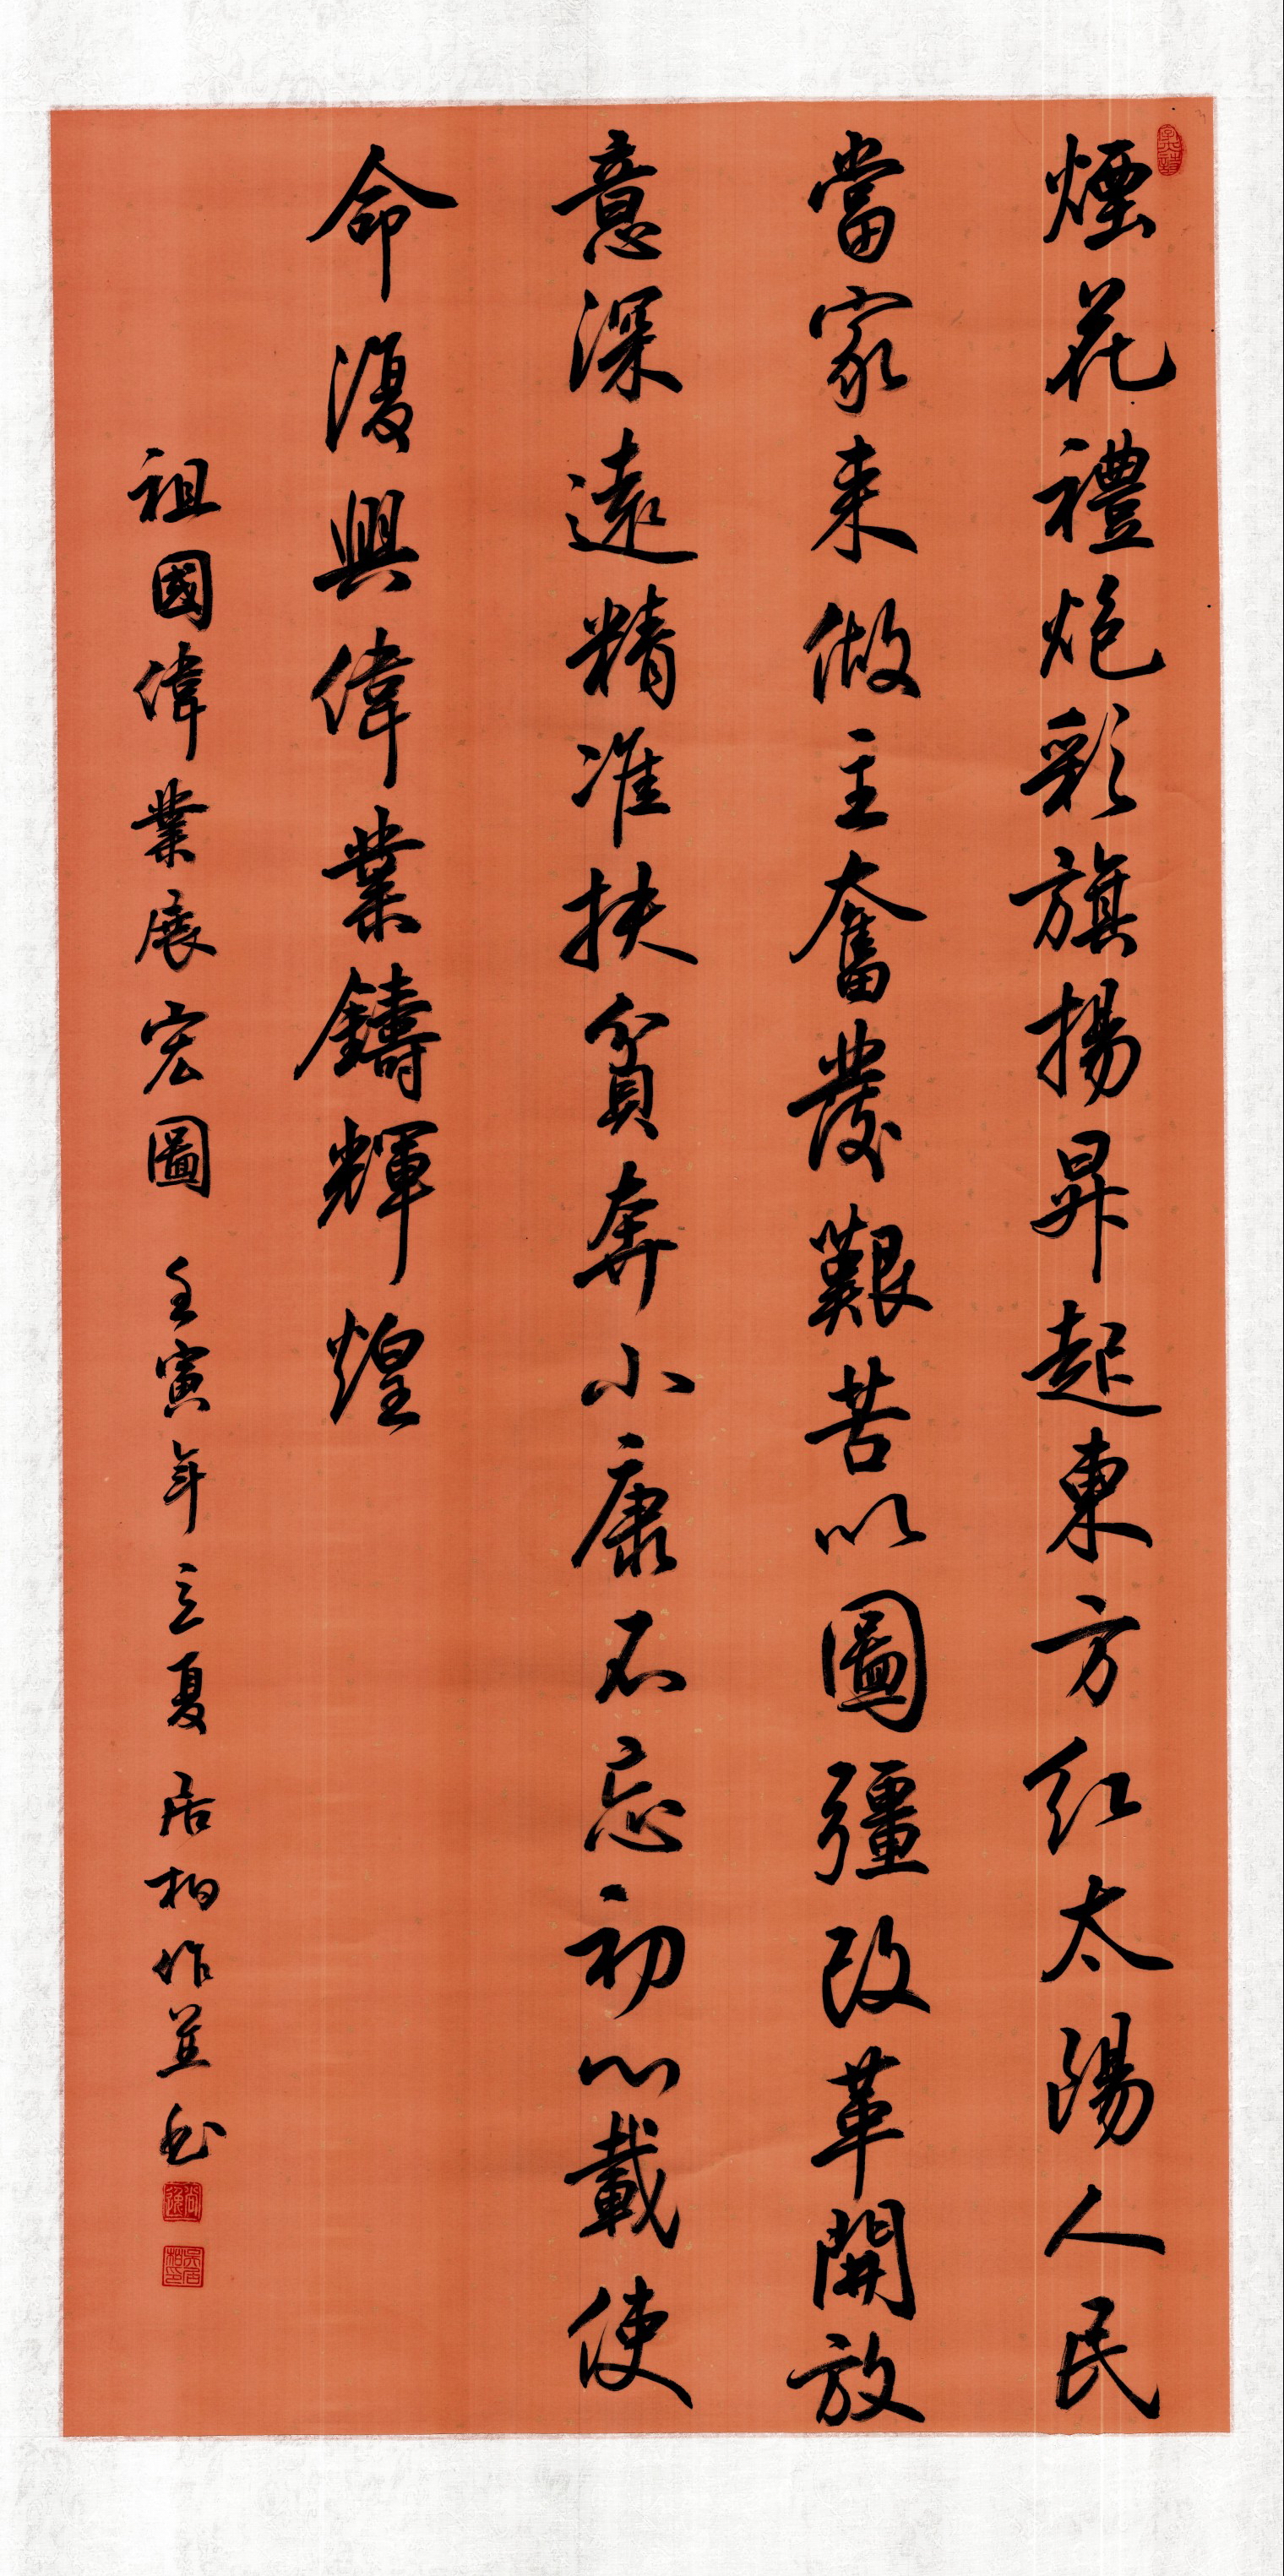 煙花禮炮彩旗揚昇起東方红太陽人民
當家来做主奮發艱苦以圖彊改革開放
意深遠精准扶貧奔小康不忘初心載使
命復興偉業鑄輝煌
祖國偉業展宏圖 壬寅年立夏居柏作並书